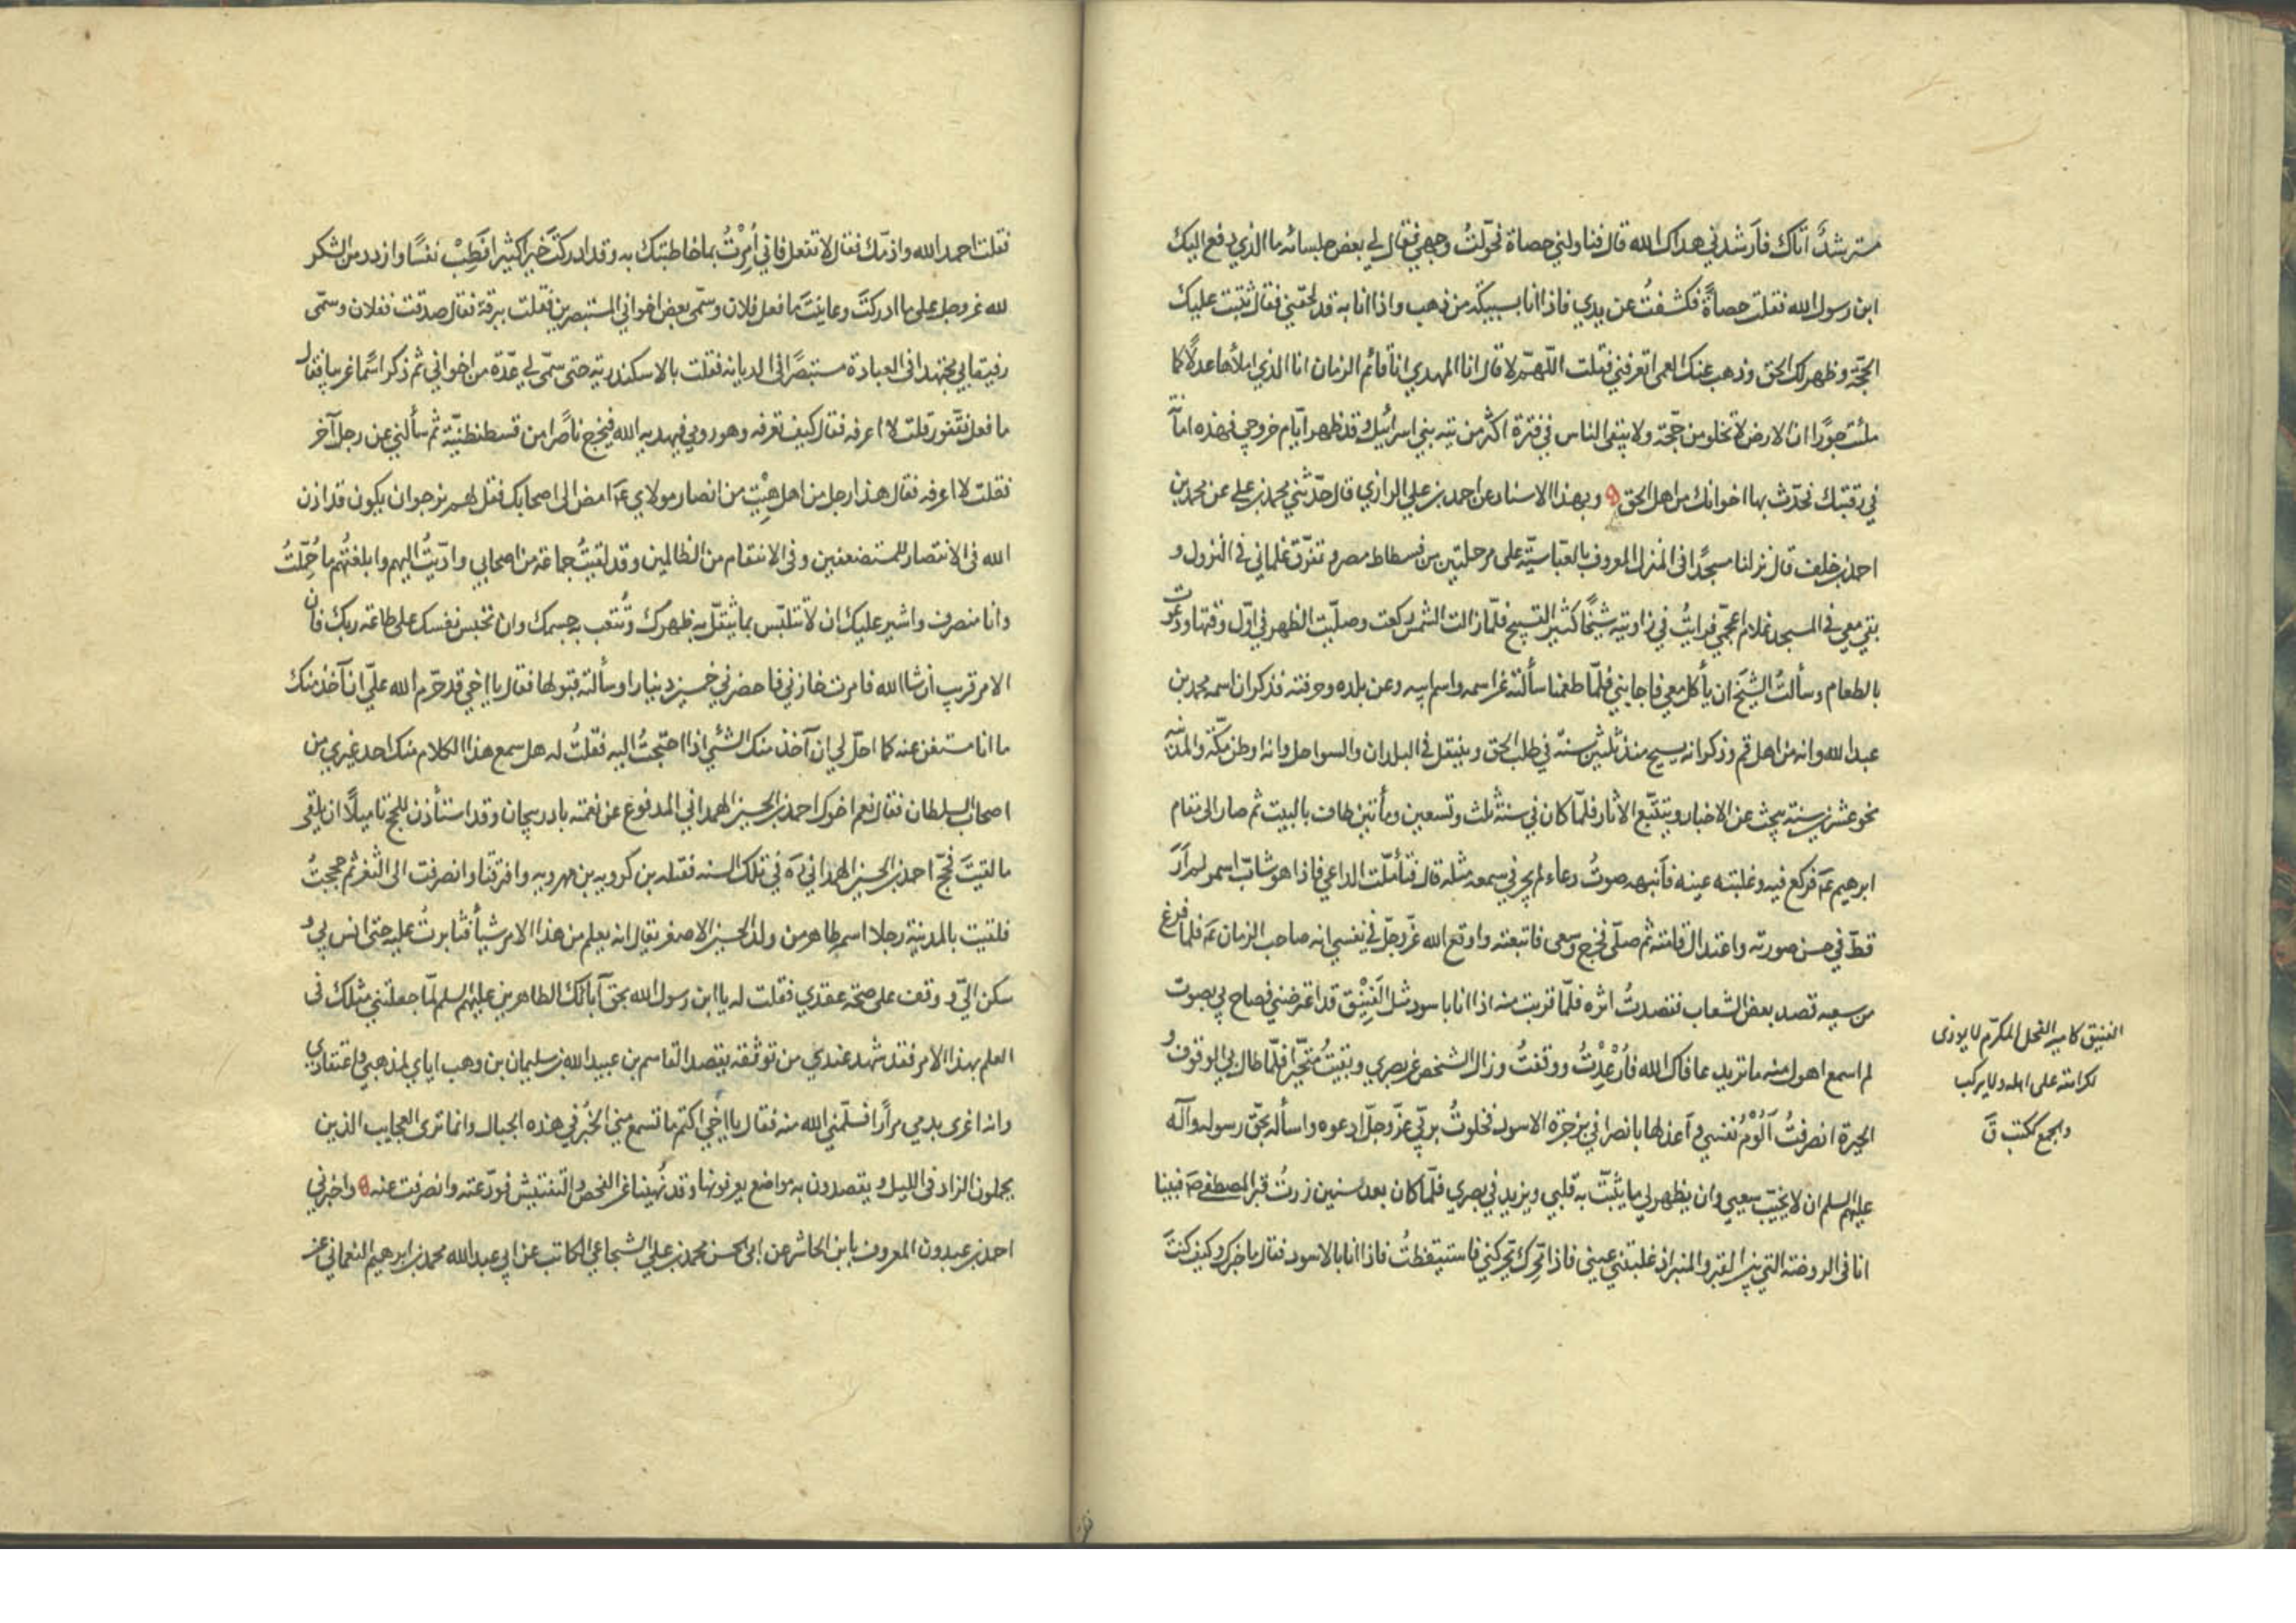 مسترشدًا أتاك فأرشدني هداك الله قال فناولني حصاة فحوّلتُ وجهي فقال لي بعض جلسائه ما الذي دفع اليك
ابن رسول الله فقلت حصاةً فكشفتُ عن يدي فاذا انا بسبيكة من ذهب واذا انا به قد لحقني فقال ثبتت عليك
الحجّة وظهر لك الحق وذهب عنك العمى اتعرفني فقلت اللّهمّ لا قال انا المهدي انا قائم الزمان انا الذي املأها عدلًا كما
ملئت جورًا ان الارض لا تخلو من حجّة ولا يبقى الناس في فترة اكثر من تيه بني اسرائيل وقد ظهر ايّام خروجي فهذه امانة
في رقبتك فحدّث بها اخوانك من اهل الحق وبهذا الاسناد عن احمد بن علي الرازي قال حدّثني محمد بن علي عن محمد بن
احمد بن خلف قال نزلنا مسجدًا في المنزل المعروف بالعبّاسيّة على مرحلتين من فسطاط مصر وتفرّق غلماني في النزول و
بقي معي في المسجد غلام اعجميّ فرايتُ في زاويته شيخًا كثير التسبيح فلمّا زالت الشمس ركعت وصلّيت الظهر في اوّل وقتها ودعوت
بالطعام وسألتُ الشيخ ان يأكل معي فاجابني فلمّا طعمنا سألته عن اسمه واسم ابيه وعن بلده وحرفته فذكر ان اسمه محمد بن
عبد الله وانه من اهل قم وذكر انه يسيح منذ ثلثين سنة في طلب الحق وينتقل في البلدان والسواحل وانه اوطن مكّة والمدينة
نحو عشرين سنة يبحث عن الاخبار ويتتبّع الاثار فلمّا كان في سنة ثلث وتسعين ومأتين طاف بالبيت ثم صار الى مقام
ابرهيم عم فركع فيه وغلبته عينه فأنبهه صوتُ دعاء لم يجر في سمعه مثله قال فتأملت الداعي فاذا هو شابّ اسمر لم أر
قطّ في حسن صورته واعتدال قامته ثم صلّى فخرج وسعى فاتبعته واوقع الله عزّ وجلّ في نفسي انه صاحب الزمان عم فلمّا فرغ
من سعيه قصد بعض الشعاب فقصدتُ اثره فلمّا قربت منه اذا انا باسود مثل الفنيق قد اعترضني فصاح بي بصوت
لم اسمع اهول منه ما تريد عافاك الله فأُرْعِدْتُ ووقفتُ وزال الشخص عن بصري وبقيتُ متحيّرًا فلمّا طال بي الوقوف و
الحيرة انصرفتُ أَلُوْمُ نفسي و اعذلها بانصرافي بزجرة الاسود فخلوتُ بربّي عزّ وجلّ ادعوه واسأله بحقّ رسوله وآله
عليهم السلم ان لا يخيّب سعيي وان يظهر لي ما يثبّت به قلبي ويزيد في بصري فلمّا كان بعد سنين زرتُ قبر المصطفى ص فبينا
انا في الروضة التي بين القبر والمنبر اذ غلبتني عيني فاذا محرّك يحركني فاستيقظتُ فاذا انا بالاسود فقال ما خبرك وكيف كنتَ
الفنيق كامير الفحل المكرّم لا يوذى
لكرامته على اهله ولا يركب
والجمع ككتب ق
فقلت احمد الله واذمّك فقال لا تفعل فاني أُمِرْتُ بما خاطبتك به وقد ادركتَ خيرا كثيرا فَطِبْ نفسًا وازدد من الشكر
لله عز وجل على ما ادركتَ وعاينتَ ما فعل فلان وسمّى بعض اخواني المستبصرين فقلت ببرقة فقال صدقت ففلان وسمّى
رفيقا لي مجتهدا في العبادة مستبصرًا في الديانة فقلت بالاسكندرية حتى سمّى لي عدّة من اخواني ثم ذكر اسمًا غريبا فقال
ما فعل نقفور قلت لا اعرفه فقال كيف تعرفه وهو رومي فيهديه الله فيخرج ناصرا من قسطنطنيّة ثم سألني عن رجل آخر
فقلت لا اعرفه فقال هذا رجل من اهل هِيْت من انصار مولاي عم امض الى اصحابك فقل لهم نرجو ان يكون قد اذن
الله في الانتصار للمستضعفين وفي الانتقام من الظالمين وقد لقيتُ جماعة من اصحابي وادّيتُ اليهم وابلغتُهم ما حُمّلتُ
وانا منصرف واشير عليك ان لا تتلبّس بما يثقل به ظهرك وتُتعب به جسمك وان تحبس نفسك على طاعة ربك فان
الامر قريب ان شا الله فامرت خازني فاحضرني خمسين دينارا وسألته قبولها فقال يا اخي قد حرّم الله عليّ ان آخذ منك
ما انا مستغن عنه كما احلّ لي ان آخذ منك الشئي اذا احتجتُ اليه فقلتُ له هل سمع هذا الكلام منك احد غيري من
اصحاب السلطان فقال نعم اخوك احمد بن الحسين الهمداني المدفوع عن نعمته بادربيجان وقد استأذن للحج تاميلًا ان يلقى
ما لقيتَ فحجّ احمد بن الحسين الهمداني ره في تلك السنه فقتله بن كرويه بن مهرويه وافترقنا وانصرفت الى الثغر ثم حججتُ
فلقيت بالمدينة رجلا اسمه طاهر من ولد الحسين الاصغر يقال انه يعلم من هذا الامر شيأ فثابرتُ عليه حتى انس بي و
سكن اليّ و وقف على صحّة عقدي فقلت له يا ابن رسول الله بحق آبائك الطاهرين عليهم السلم لمّا جعلتني مثلك في
العلم بهذا الامر فقد شهد عندي من توثقه بقصد القاسم بن عبيد الله بن سليمان بن وهب اياي لمذهبي واعتقادي
وانه اغرى بدمي مرارًا فسلّمني الله منه فقال يا اخي اكتم ما تسمع مني الخبر في هذه الجبال وانما ترى العجايب الذين
يحملون الزاد في الليل و يقصدون به مواضع يعرفونها وقد نُهينا عن الفحص والتفتيش فودّعته وانصرفت عنه واخبرني
احمد بن عبدون المعروف بابن الحاشر عن ابى الحسن محمد بن علي الشجاعي الكاتب عن ابي عبد الله محمد بن ابرهيم النعماني عن